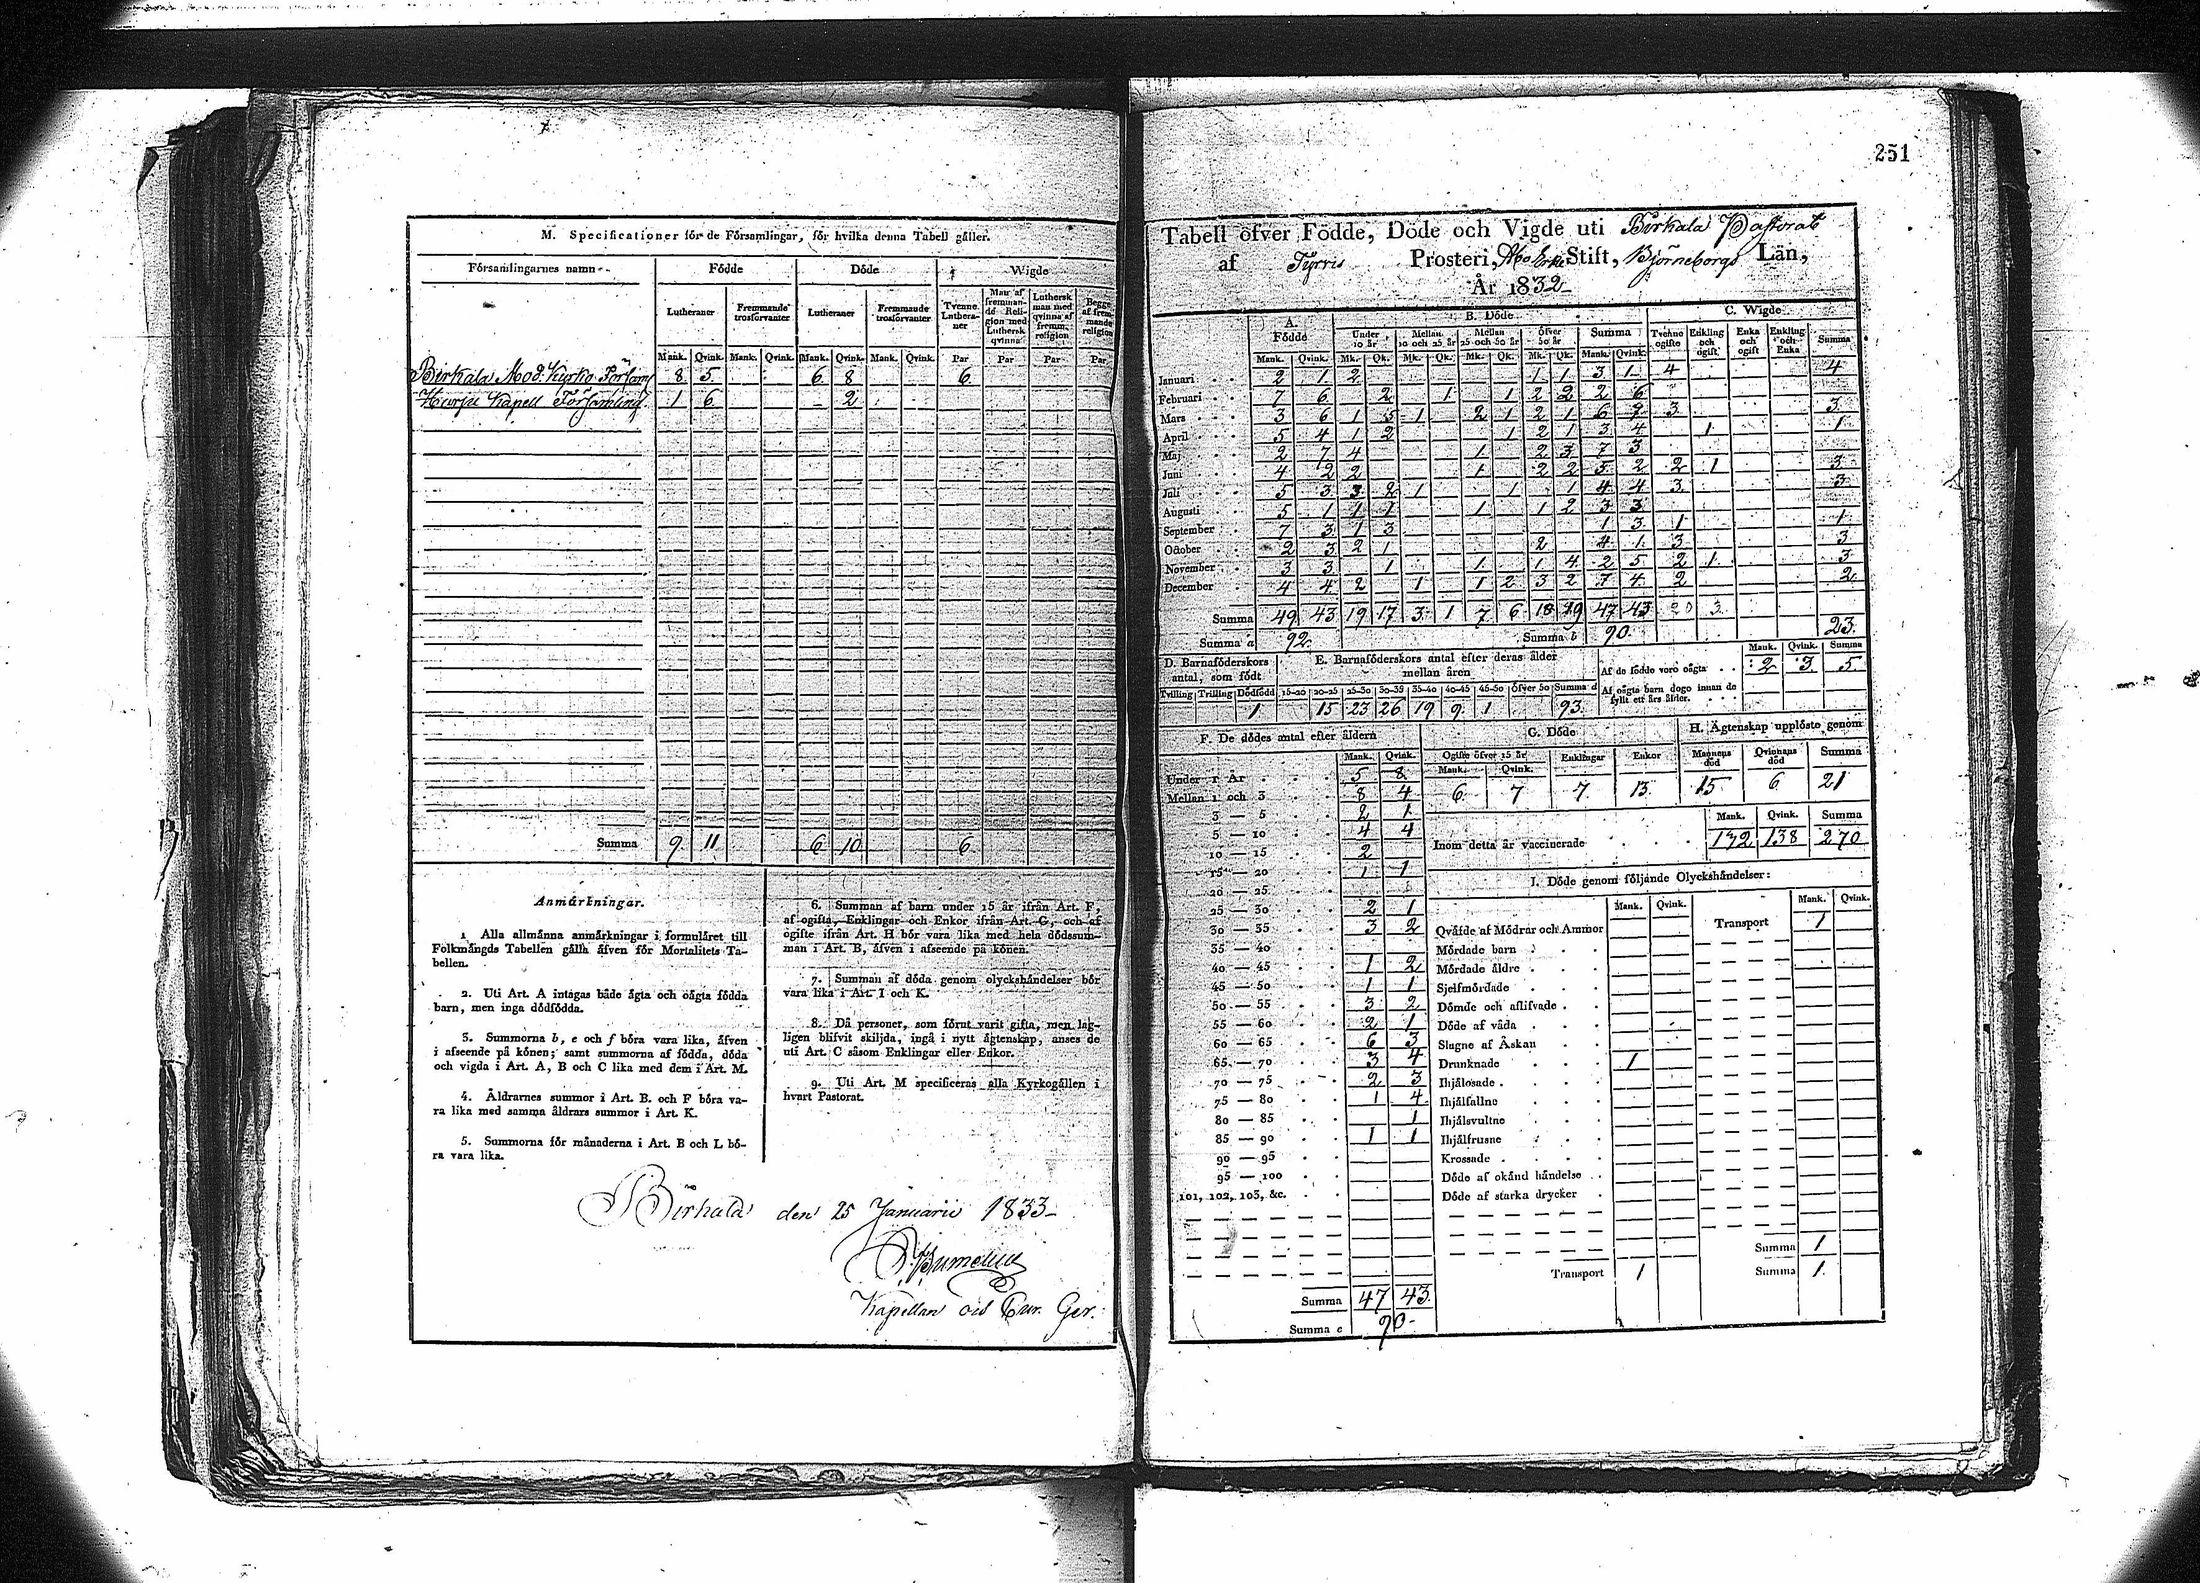 M. Specificationer för de Församlingar, för hvilka denna Tabell gäller.
Församlingarnes namn
Födde
Döde
Wigde
Lutheraner
Fremmande trosförvanter
Lutheraner
Fremmande trosförvanter
Tvenne Lutheraner
Man af fremmande Religion med Luthersk qvinna
Luthersk man med qvinna af fremm. religion
Begge af fremmande religion
Mank. Qvink. Mank. Qvink. Mank. Qvink. Mank. Qvink. Par Par Par Par
Birkala Mod. Kyrko Församl 8 5 6 8 6
Harju Kapell Församling 1 6 - 2
Summa 9 11 6 10 6
Anmärkningar.
1 Alla allmänna anmärkningar i formuläret till
Folkmängds Tabellen gälla äfven för Mortalitets Ta-
bellen.
2. Uti Art. A intagas både ägta och oägta födda
barn, men inga dödfödda.
3. Summorna b, e och f böra vara lika, äfven
i afseende på könen; samt summorna af födda, döda
och vigda i Art. A, B och C lika med dem i Art. M.
4. Åldrarnes summor i Art. B. och F böra va-
ra lika med samma åldrars summor i Art. K.
5. Summorna för månaderna i Art. B och L bö-
ra vara lika.
6. Summan af barn under 15 år ifrån Art. F,
af ogifta, Enklingar och Enkor ifrån Art. G, och af
ogifte ifrån Art. H bör vara lika med hela dödssum-
man i Art. B, äfven i afseende på könen.
7. Summan af döda genom olyckshändelser bör
vara lika i Art. I och K.
8. Då personer, som förut varit gifta, men lag-
ligen blifvit skiljda, ingå i nytt ägtenskap, anses de
uti Art. C såsom Enklingar eller Enkor.
9. Uti Art. M specificeras alla Kyrkogällen i
hvart Pastorat.
Birkala den 25 Januarii 1833
Kapellan
251
Tabell öfver Födde, Döde och Vigde uti Birkala Pastorat
af Tyrvis Prosteri, Åbo Erke Stift, Björneborgs Län,
År 1832
A. Födde
B. Döde
C. Wigde
Under 10 år
Mellan 10 och 25 år
Mellan 25 och 50 år
Öfver 50 år
Summa
Tvenne ogifte
Enkling och ogift
Enka och ogift
Enkling och Enka
Summa
Mank. Qvink. Mk. Qk. Mk. Qk. Mk. Qk. Mk. Qk. Mank. Qvink.
Januari 2 1 2 1 1 3 1 4 4
Februari 7 6 2 1 1 2 2 2 6
Mars 3 6 1 5 1 2 1 2 1 6 7 3 3
April 5 4 1 2 1 2 1 3 4 1 1
Maj 2 7 4 1 2 3 7 3
Juni 4 2 2 1 2 2 5 2 2 1 3
Juli 5 3 3 2 1 1 1 4 4 3 3
Augusti 5 1 1 1 1 1 2 3 3
September 7 3 1 3 1 3 1 1
October 2 3 2 1 2 4 1 3 3
November 3 3 1 1 1 4 2 5 2 1 3
December 4 4 2 1 1 2 3 2 7 4 2 2
Summa 49 43 19 17 3 1 7 6 18 19 47 43 20 3 23
Summa a 92 Summa b 90
D. Barnaföderskors antal, som födt
E. Barnaföderskors antal efter deras ålder mellan åren
Mank. Qvink. Summa
Af de födde voro oägta 2 3 5
Af oägta barn dogo innan de fyllt ett års ålder.
Tvilling Trilling Dödfödd 15-20 20-25 25-30 30-35 35-40 40-45 45-50 öfver 50 Summa d
1 15 23 26 19 9 1 93
F. De dödes antal efter åldern
Mank. Qvink.
Under 1 År 5 8
Mellan 1 och 3 8 4
3 — 5 2 1
5 — 10 4 4
10 — 15 2
15 — 20 1 1
20 — 25
25 — 30 2 1
30 — 35 3 2
35 — 40
40 — 45 1 2
45 — 50 1 1
50 — 55 3 2
55 — 60 2 1
60 — 65 6 3
65 — 70 3 4
70 — 75 2 3
75 — 80 1 4
80 — 85 1
85 — 90 1 1
90 — 95
95 — 100
101, 102, 103, &c.
Summa 47 43
Summa e 90
G. Döde
Ogifte öfver 15 år
Mank. Qvink. Enklingar Enkor
6 7 7 13
H. Ägtenskap upplöste genom
Mannens död Qvinnans död Summa
15 6 21
Mank. Qvink. Summa
Inom detta år vaccinerade 132 138 270
I. Döde genom följande Olyckshändelser:
Mank. Qvink. Mank. Qvink.
Transport 1
Qväfde af Mödrar och Ammor
Mördade barn
Mördade äldre
Sjelfmördade
Dömde och aflifvade
Döde af våda
Slagne af Åskan
Drunknade 1
Ihjälosade
Ihjälfallne
Ihjälsvultne
Ihjälfrusne
Krossade
Döde af okänd händelse
Döde af starka drycker
Summa 1
Transport 1 Summa 1